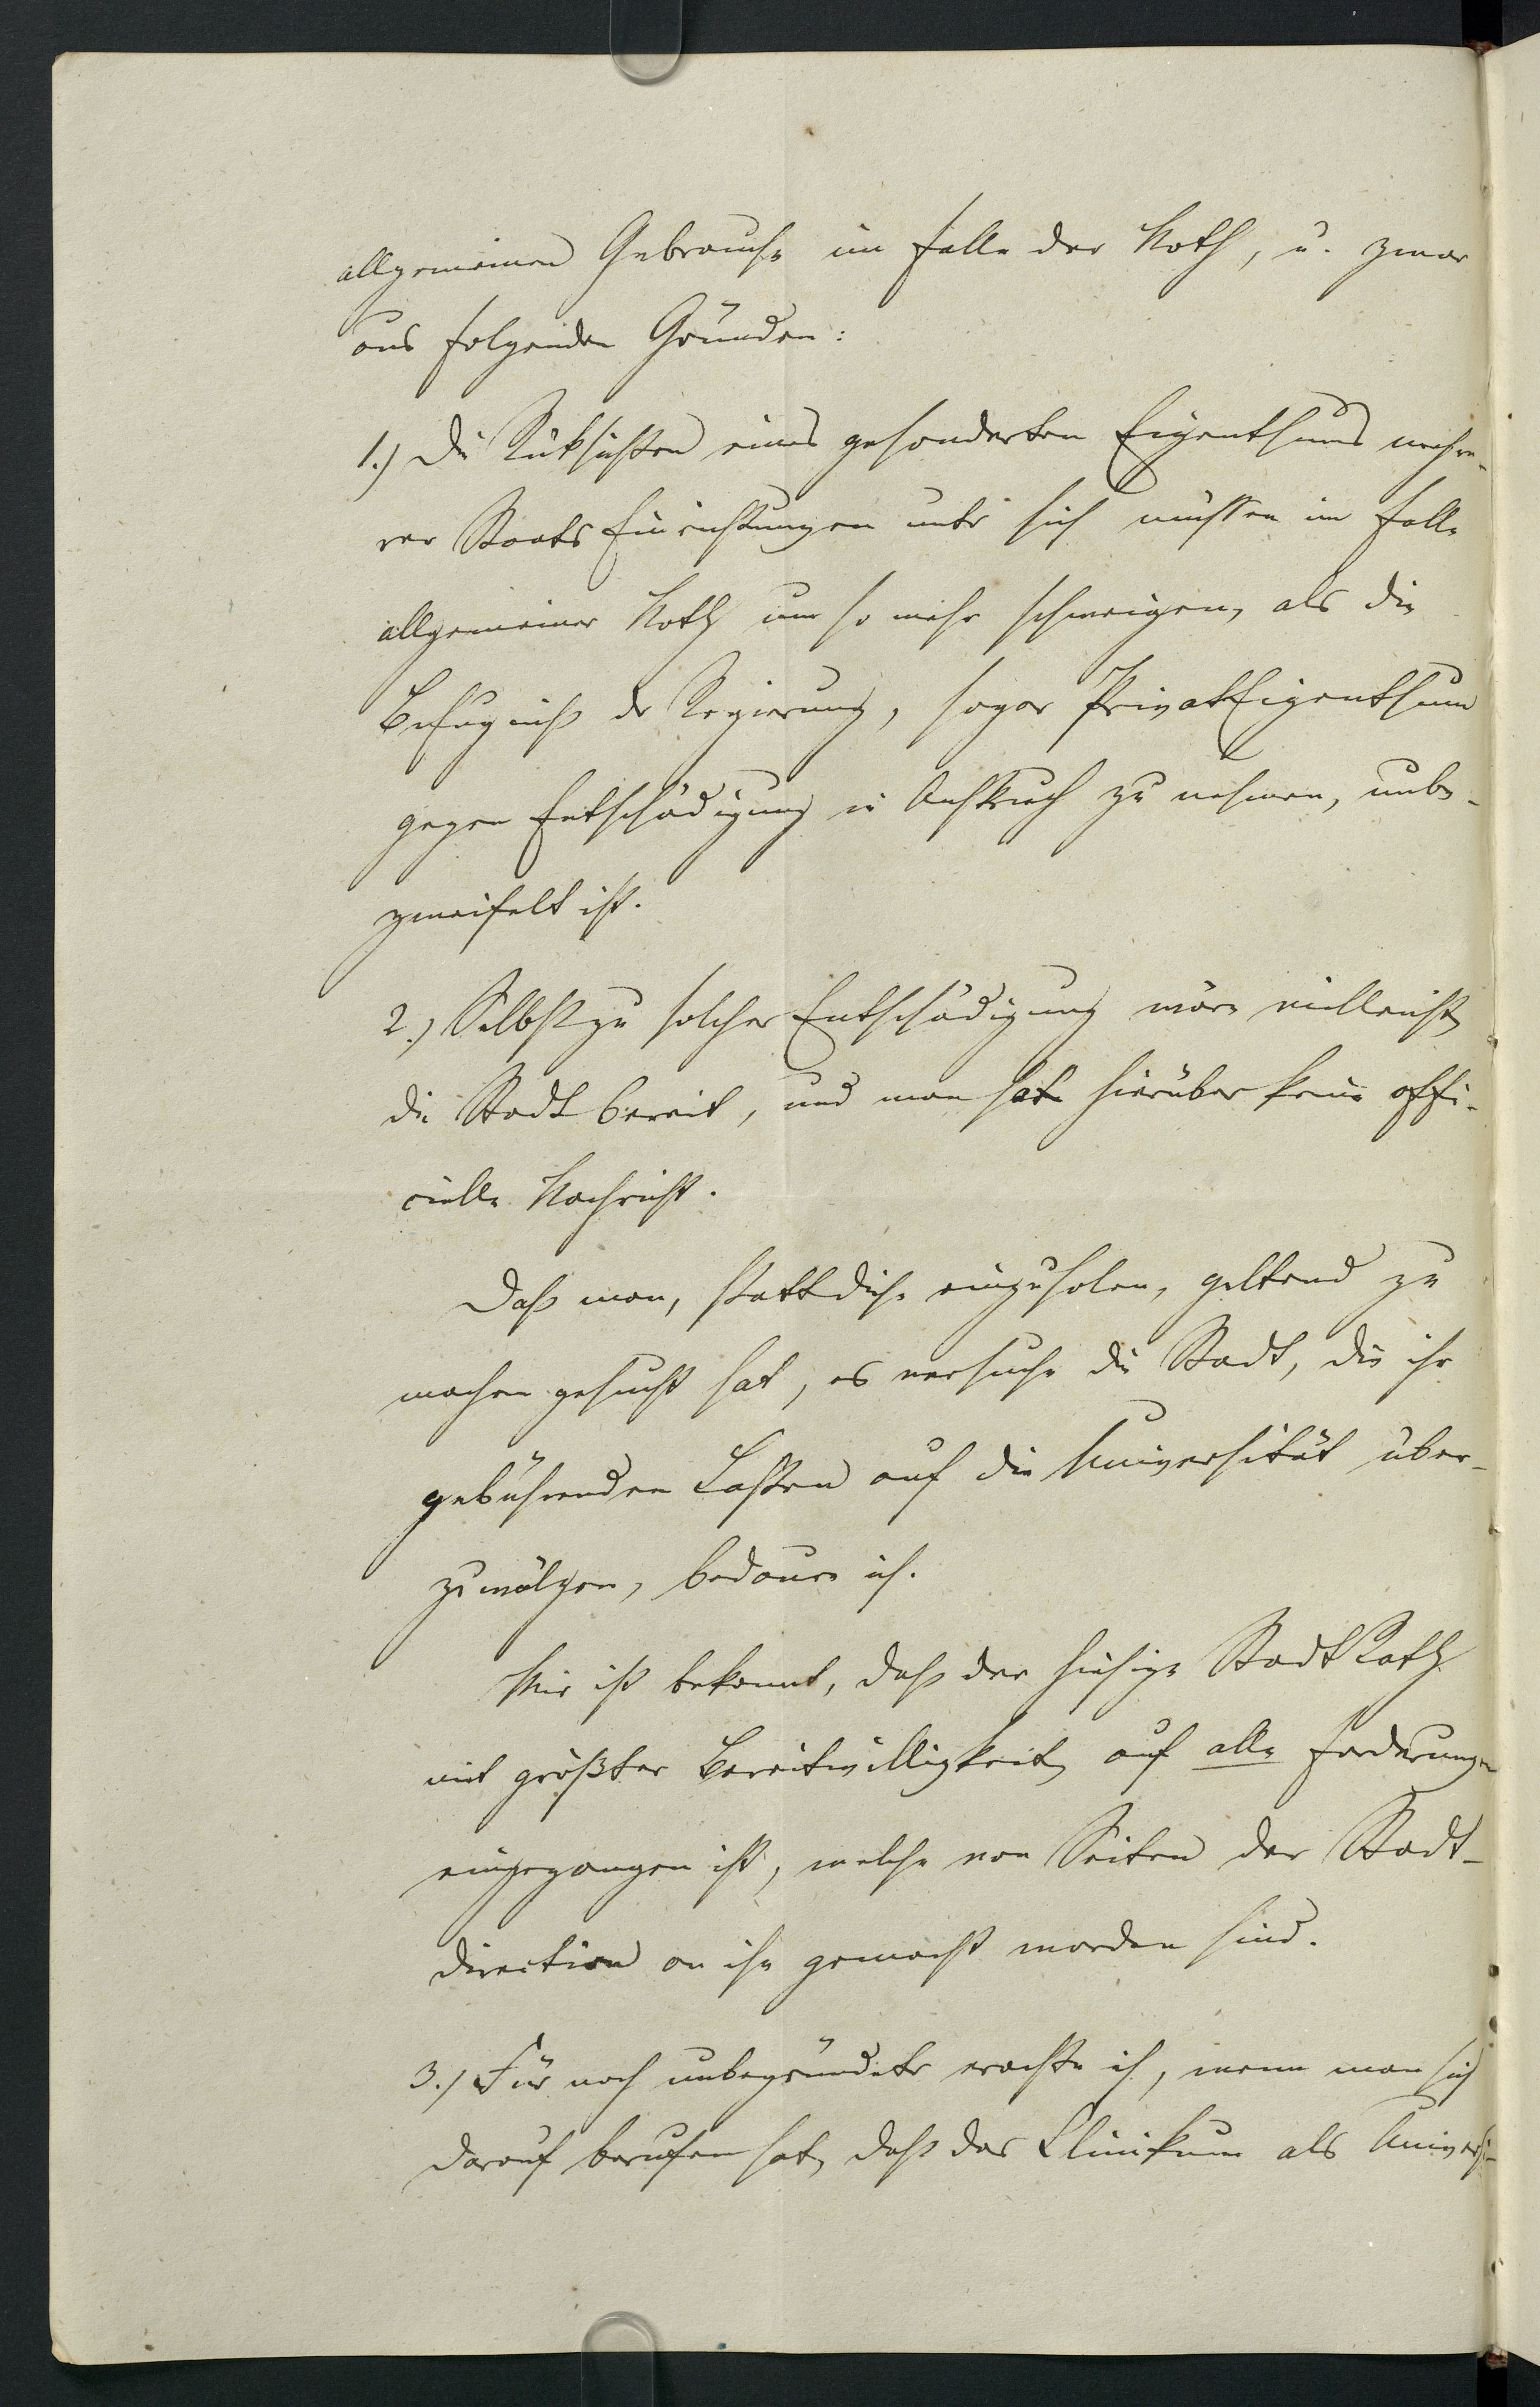 allgemeinen Gebrauche im Falle der Noth, u. zwar
aus folgenden Gründen:
1.) Die Rüksichten eines gesonderten Eigenthums mehre-
rer Staats Einrichtungen unter sich müssen im Falle
allgemeiner Noth um so mehr schweigen, als die
Befugniß der Regierung, sogar PrivatEigenthum
gegen Entschädigung in Anspruch zu nehmen, unbe-
zweifelt ist.
2.) Selbst zu solcher Entschädigung wäre vielleicht
die Stadt bereit, und man hat hierüber keine offi-
cielle Nachricht.
Daß man, statt diese einzuholen, geltend zu
machen gesucht hat, es versuche die Stadt, die ihr
gebührenden Lasten auf die Universität über-
zuwälzen, bedaure ich.
Mir ist bekannt, daß der hiesige StadtRath
mit größter Bereitwilligkeit auf alle Forderungen
eingegangen ist, welche von Seiten der Stadt-
direction an ihn gemacht worden sind.
3.) Für noch unbegründeter erachte ich, wenn man sich
darauf berufen hat, daß das Clinikum als Universi-